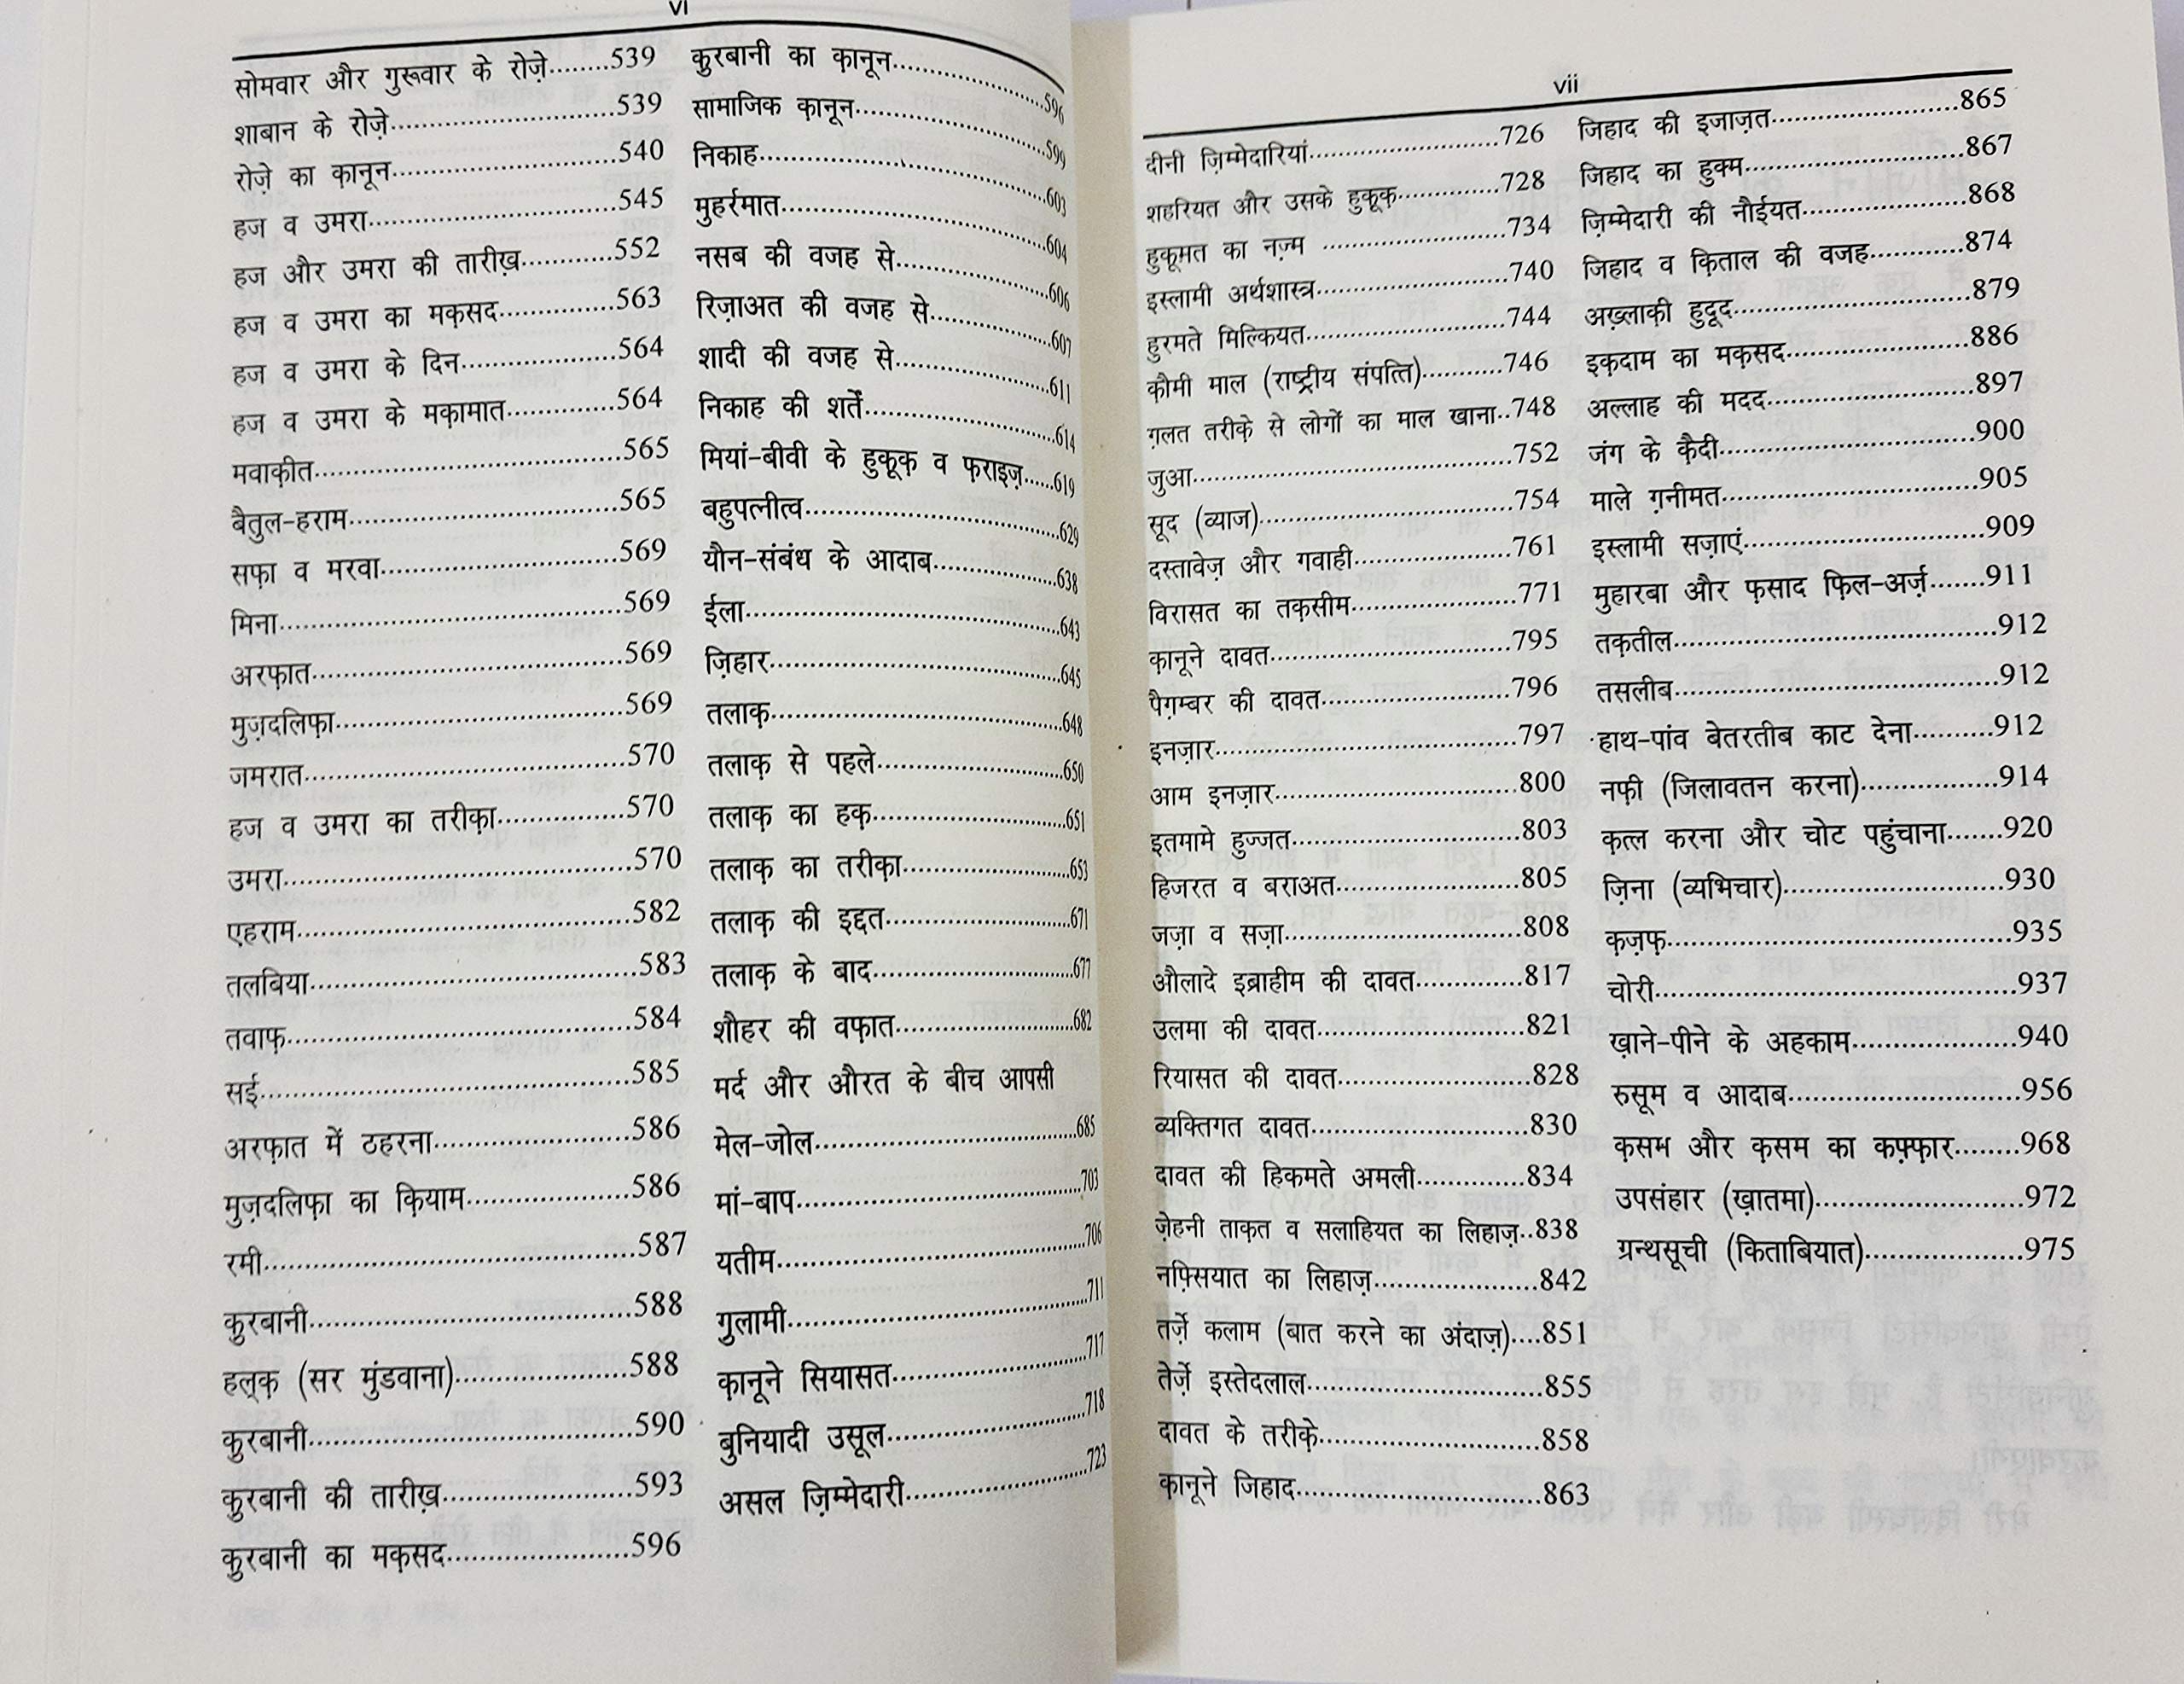 vi
सोमवार और गुरूवार के रोज़े........539
शाबान के रोज़े........539
रोज़े का क़ानून........540
हज व उमरा........545
हज और उमरा की तारीख़........552
हज व उमरा का मक़सद........563
हज व उमरा के दिन........564
हज व उमरा के मक़ामात........564
मवाक़ीत........565
बैतुल-हराम........565
सफ़ा व मरवा........569
मिना........569
अरफ़ात........569
मुज़दलिफ़ा........569
जमरात........570
हज व उमरा का तरीक़ा........570
उमरा........570
एहराम........582
तलबिया........583
तवाफ़........584
सई........585
अरफ़ात में ठहरना........586
मुज़दलिफ़ा का क़ियाम........586
रमी........587
क़ुरबानी........588
हल्क़ (सर मुंडवाना)........588
क़ुरबानी........590
क़ुरबानी की तारीख़........593
क़ुरबानी का मक़सद........596
क़ुरबानी का क़ानून........596
सामाजिक क़ानून........599
निकाह........603
मुहर्रमात........604
नसब की वजह से........606
रिज़ाअत की वजह से........607
शादी की वजह से........611
निकाह की शर्तें........614
मियां-बीवी के हुक़ूक़ व फ़राइज़......619
बहुपत्नीत्व........629
यौन-संबंध के आदाब........638
ईला........643
ज़िहार........645
तलाक़........648
तलाक़ से पहले........650
तलाक़ का हक़........651
तलाक़ का तरीक़ा........653
तलाक़ की इद्दत........671
तलाक़ के बाद........677
शौहर की वफ़ात........682
मर्द और औरत के बीच आपसी
मेल-जोल........685
मां-बाप........703
यतीम........706
गुलामी........711
क़ानूने सियासत........717
बुनियादी उसूल........718
असल ज़िम्मेदारी........723
vii
दीनी ज़िम्मेदारियां........726
शहरियत और उसके हुक़ूक़........728
हुकूमत का नज़्म ........734
इस्लामी अर्थशास्त्र........740
हुरमते मिल्कियत........744
क़ौमी माल (राष्ट्रीय संपत्ति)........746
ग़लत तरीक़े से लोगों का माल खाना..748
जुआ........752
सूद (व्याज)........754
दस्तावेज़ और गवाही........761
विरासत का तक़सीम........771
क़ानूने दावत........795
पैग़म्बर की दावत........796
इनज़ार........797
आम इनज़ार........800
इतमामे हुज्जत........803
हिजरत व बराअत........805
जज़ा व सज़ा........808
औलादे इब्राहीम की दावत........817
उलमा की दावत........821
रियासत की दावत........828
व्यक्तिगत दावत........830
दावत की हिकमते अमली........834
ज़ेहनी ताक़त व सलाहियत का लिहाज़..838
नफ़्सियात का लिहाज़........842
तर्ज़े कलाम (बात करने का अंदाज़)....851
तेर्ज़े इस्तेदलाल........855
दावत के तरीक़े........858
क़ानूने जिहाद........863
जिहाद की इजाज़त........865
जिहाद का हुक्म........867
ज़िम्मेदारी की नौईयत........868
जिहाद व क़िताल की वजह........874
अख़्लाक़ी हुदूद........879
इक़दाम का मक़सद........886
अल्लाह की मदद........897
जंग के क़ैदी........900
माले ग़नीमत........905
इस्लामी सज़ाएं........909
मुहारबा और फ़साद फ़िल-अर्ज़.......911
तक़तील........912
तसलीब........912
हाथ-पांव बेतरतीब काट देना........912
नफ़ी (जिलावतन करना)........914
क़त्ल करना और चोट पहुंचाना.......920
ज़िना (व्यभिचार)........930
क़ज़फ़........935
चोरी........937
ख़ाने-पीने के अहकाम........940
रुसूम व आदाब........956
क़सम और क़सम का कफ़्फ़ार........968
उपसंहार (ख़ातमा)........972
ग्रन्थसूची (किताबियात)........975